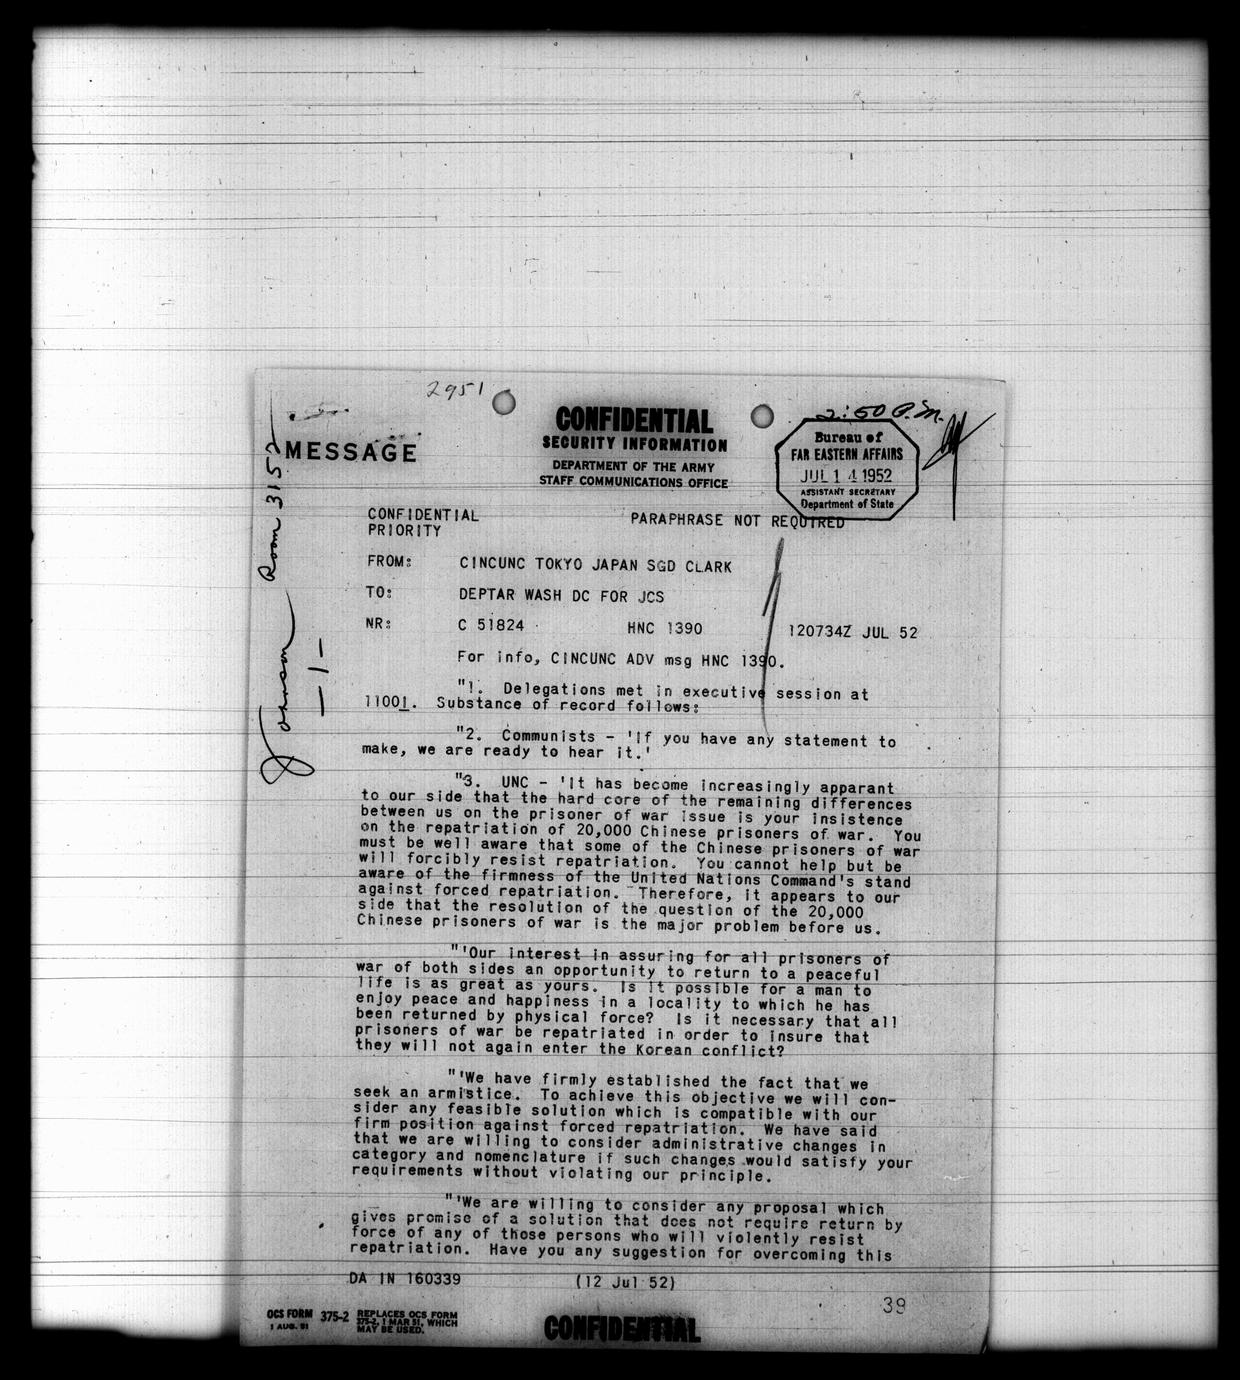 2951
2:50 P.M.
CONFIDENTIAL
SECURITY INFORMATION
DEPARTMENT OF THE ARMY
STAFF COMMUNICATIONS OFFICE
MESSAGE
Bureau of
FAR EASTERN AFFAIRS
JUL 14 1952
ASSISTANT SECRETARY
Department of State
Johnson Room 3152
-1-
CONFIDENTIAL PARAPHRASE NOT REQUIRED
PRIORITY
FROM: CINCUNC TOKYO JAPAN SGD CLARK
TO: DEPTAR WASH DC FOR JCS
NR: C 51824 HNC 1390 120734Z JUL 52
For info, CINCUNC ADV msg HNC 1390.
"1. Delegations met in executive session at
1100I. Substance of record follows:
"2. Communists - 'If you have any statement to
make, we are ready to hear it.'
"3. UNC - 'It has become increasingly apparant
to our side that the hard core of the remaining differences
between us on the prisoner of war issue is your insistence
on the repatriation of 20,000 Chinese prisoners of war. You
must be well aware that some of the Chinese prisoners of war
will forcibly resist repatriation. You cannot help but be
aware of the firmness of the United Nations Command's stand
against forced repatriation. Therefore, it appears to our
side that the resolution of the question of the 20,000
Chinese prisoners of war is the major problem before us.
"'Our interest in assuring for all prisoners of
war of both sides an opportunity to return to a peaceful
life is as great as yours. Is it possible for a man to
enjoy peace and happiness in a locality to which he has
been returned by physical force? Is it necessary that all
prisoners of war be repatriated in order to insure that
they will not again enter the Korean conflict?
"'We have firmly established the fact that we
seek an armistice. To achieve this objective we will con-
sider any feasible solution which is compatible with our
firm position against forced repatriation. We have said
that we are willing to consider administrative changes in
category and nomenclature if such changes would satisfy your
requirements without violating our principle.
"'We are willing to consider any proposal which
gives promise of a solution that does not require return by
force of any of those persons who will violently resist
repatriation. Have you any suggestion for overcoming this
DA IN 160339 (12 Jul 52)
39
OCS FORM 375-2 REPLACES OCS FORM
1 AUG. 51 375-2, 1 MAR 51, WHICH
MAY BE USED.
CONFIDENTIAL